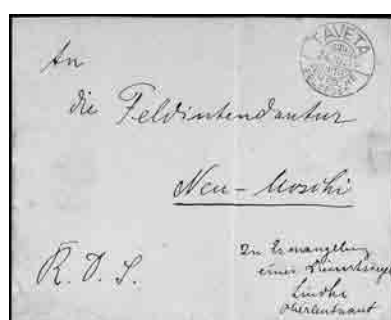 TAVETA
An
die Feldintendantur
Neu-Moschi
R. D. S.
In Ermangelung
eines Dienstsiegels
Oberleutnant